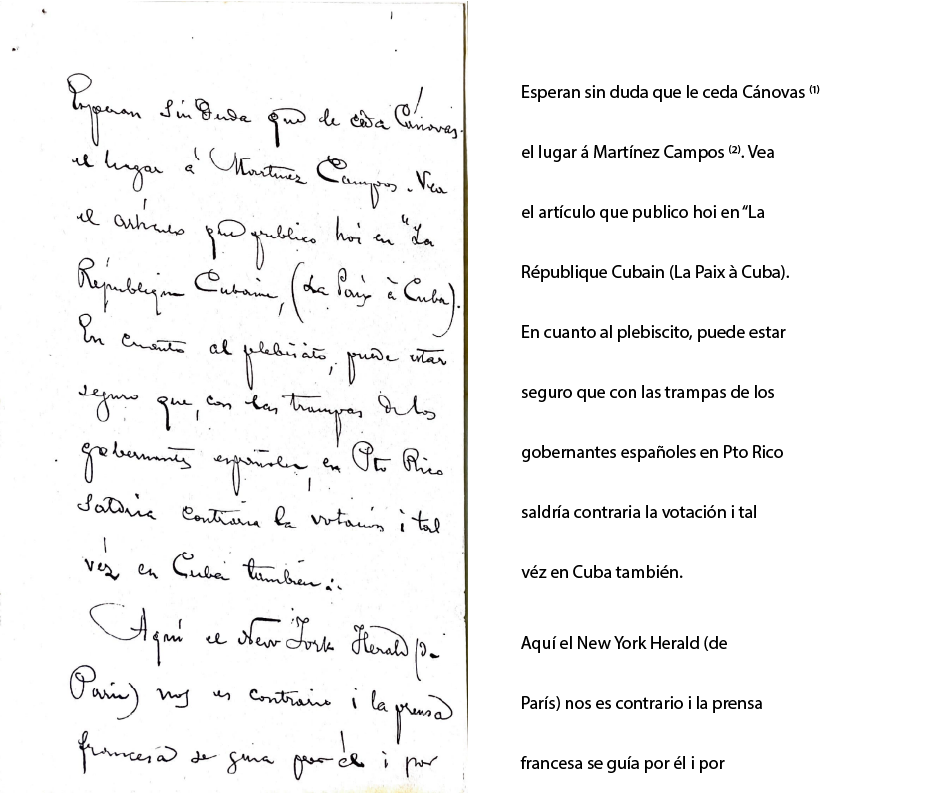 Esperan sin duda que le ceda Cánovas
el lugar á Martinez Campos. Vea
el artículo que publico hoi en "La
République Cubaine, (La Paix à Cuba).
En cuanto al plebiscito, puede estar
seguro que, con las trampas de los
gobernantes españoles, en Pto Rico
saldría contraria la votación i tal
véz en Cuba también:.
Aquí el New York Herald (de
París) nos es contrario i la prensa
francesa se guia por él i por
Esperan sin duda que le ceda Cánovas (1)
el lugar á Martínez Campos (2). Vea
el artículo que publico hoi en “La
République Cubain (La Paix à Cuba).
En cuanto al plebiscito, puede estar
seguro que con las trampas de los
gobernantes españoles en Pto Rico
saldría contraria la votación i tal
véz en Cuba también.
Aquí el New York Herald (de
París) nos es contrario i la prensa
francesa se guía por él i por